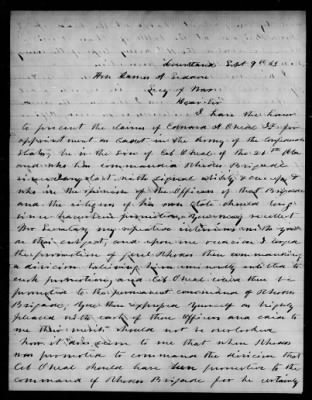 Courtland Sept 9th 63
Hon James A Seddon
Secy of War
Dear Sir
I have the honor
to present the claims of Edward A O'Neal Jr for
appointment as Cadet in the Army of the Confederate
States, he is the Son of Col O'Neal of the 26th Ala
and who has commanded Rhodes Brigade
since May last with signal ability &
who in the opinion of the Officers of that Brigade
and the citizens of his own State should long
since have been promoted, You may recollect
Mr Secretary my repeated interviews with you
on this subject, and upon one occasion I urged
the promotion of Genl Rhodes then commanding
a division believing him eminently entitled to
such promotion, and Col O'Neal could then be
promoted to the permanent command of Rhodes
Brigade, You then expressed yourself as highly
pleased with each of these Officers and said to
me their merits should not be overlooked
Now it does seem to me that when Rhodes
was promoted to command the division that
Col O'Neal should have been promoted to the
command of Rhodes Brigade for he certainly